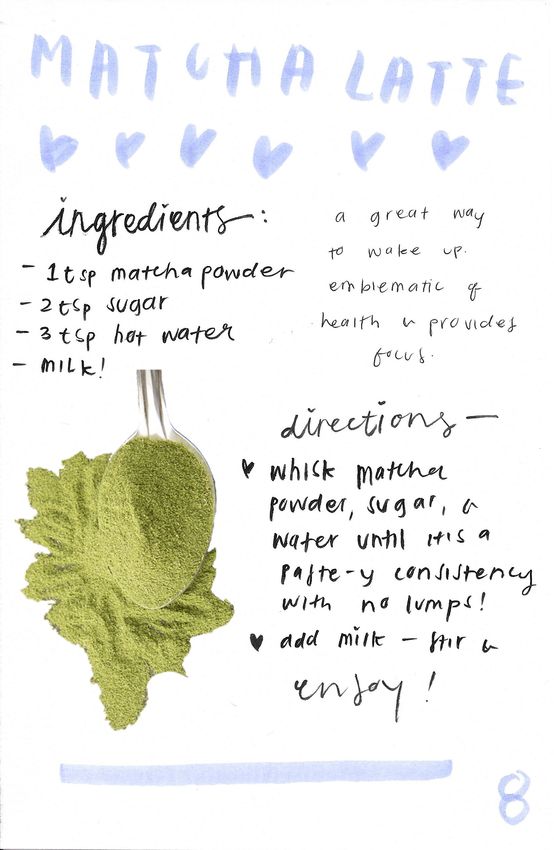 MATCHA LATTE
ingredients:
- 1 tsp matcha powder
- 2 tsp sugar
- 3 tsp hot water
- milk!
a great way
to wake up.
emblematic of
health & provides
focus.
directions -
♥ whisk matcha
powder, sugar, &
water until it is a
paste-y consistency
with no lumps!
♥ add milk - stir &
enjoy!
8